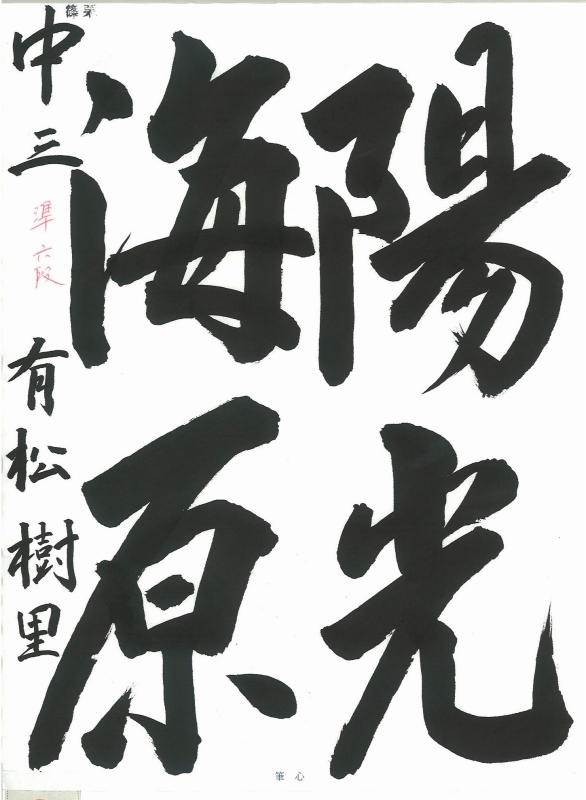 陽光
海原
中三 準六段 有松樹里
心筆